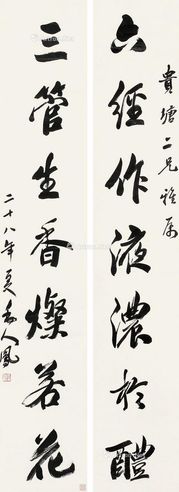 貴塘二兄雅属
六經作液濃於醴
三管生香燦若花
二十八年夏
人鳳